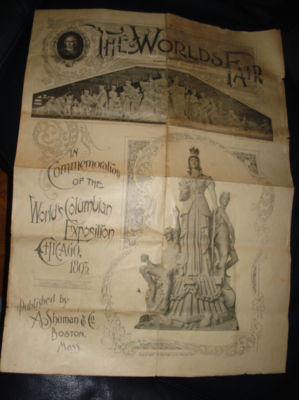 THE WORLDS FAIR
IN
Commemoration
OF THE
World's Columbian
Exposition
CHICAGO,
1893
Published by
A. Shuman & Co.
BOSTON,
Mass.